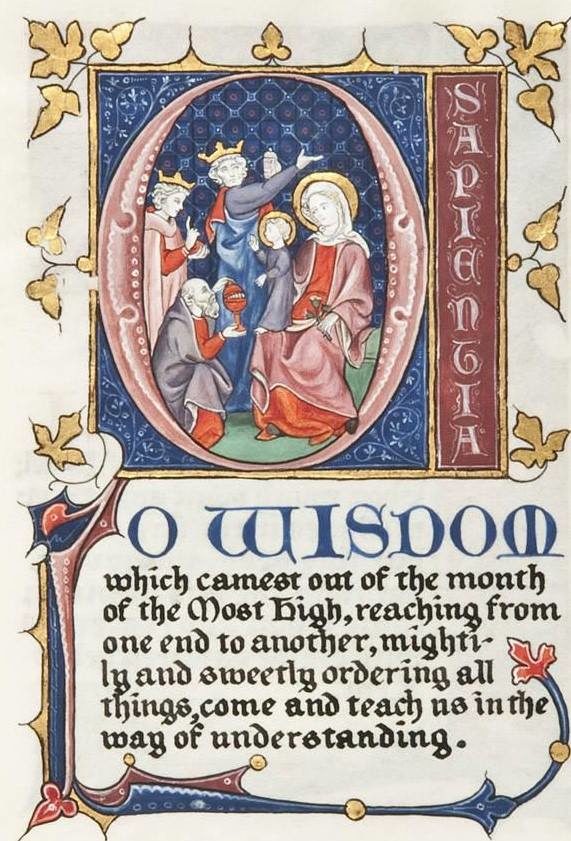 SAPIENTIA
O WISDOM
which camest out of the month
of the Most High, reaching from
one end to another, mighti-
ly and sweetly ordering all
things, come and teach us in the
way of understanding.